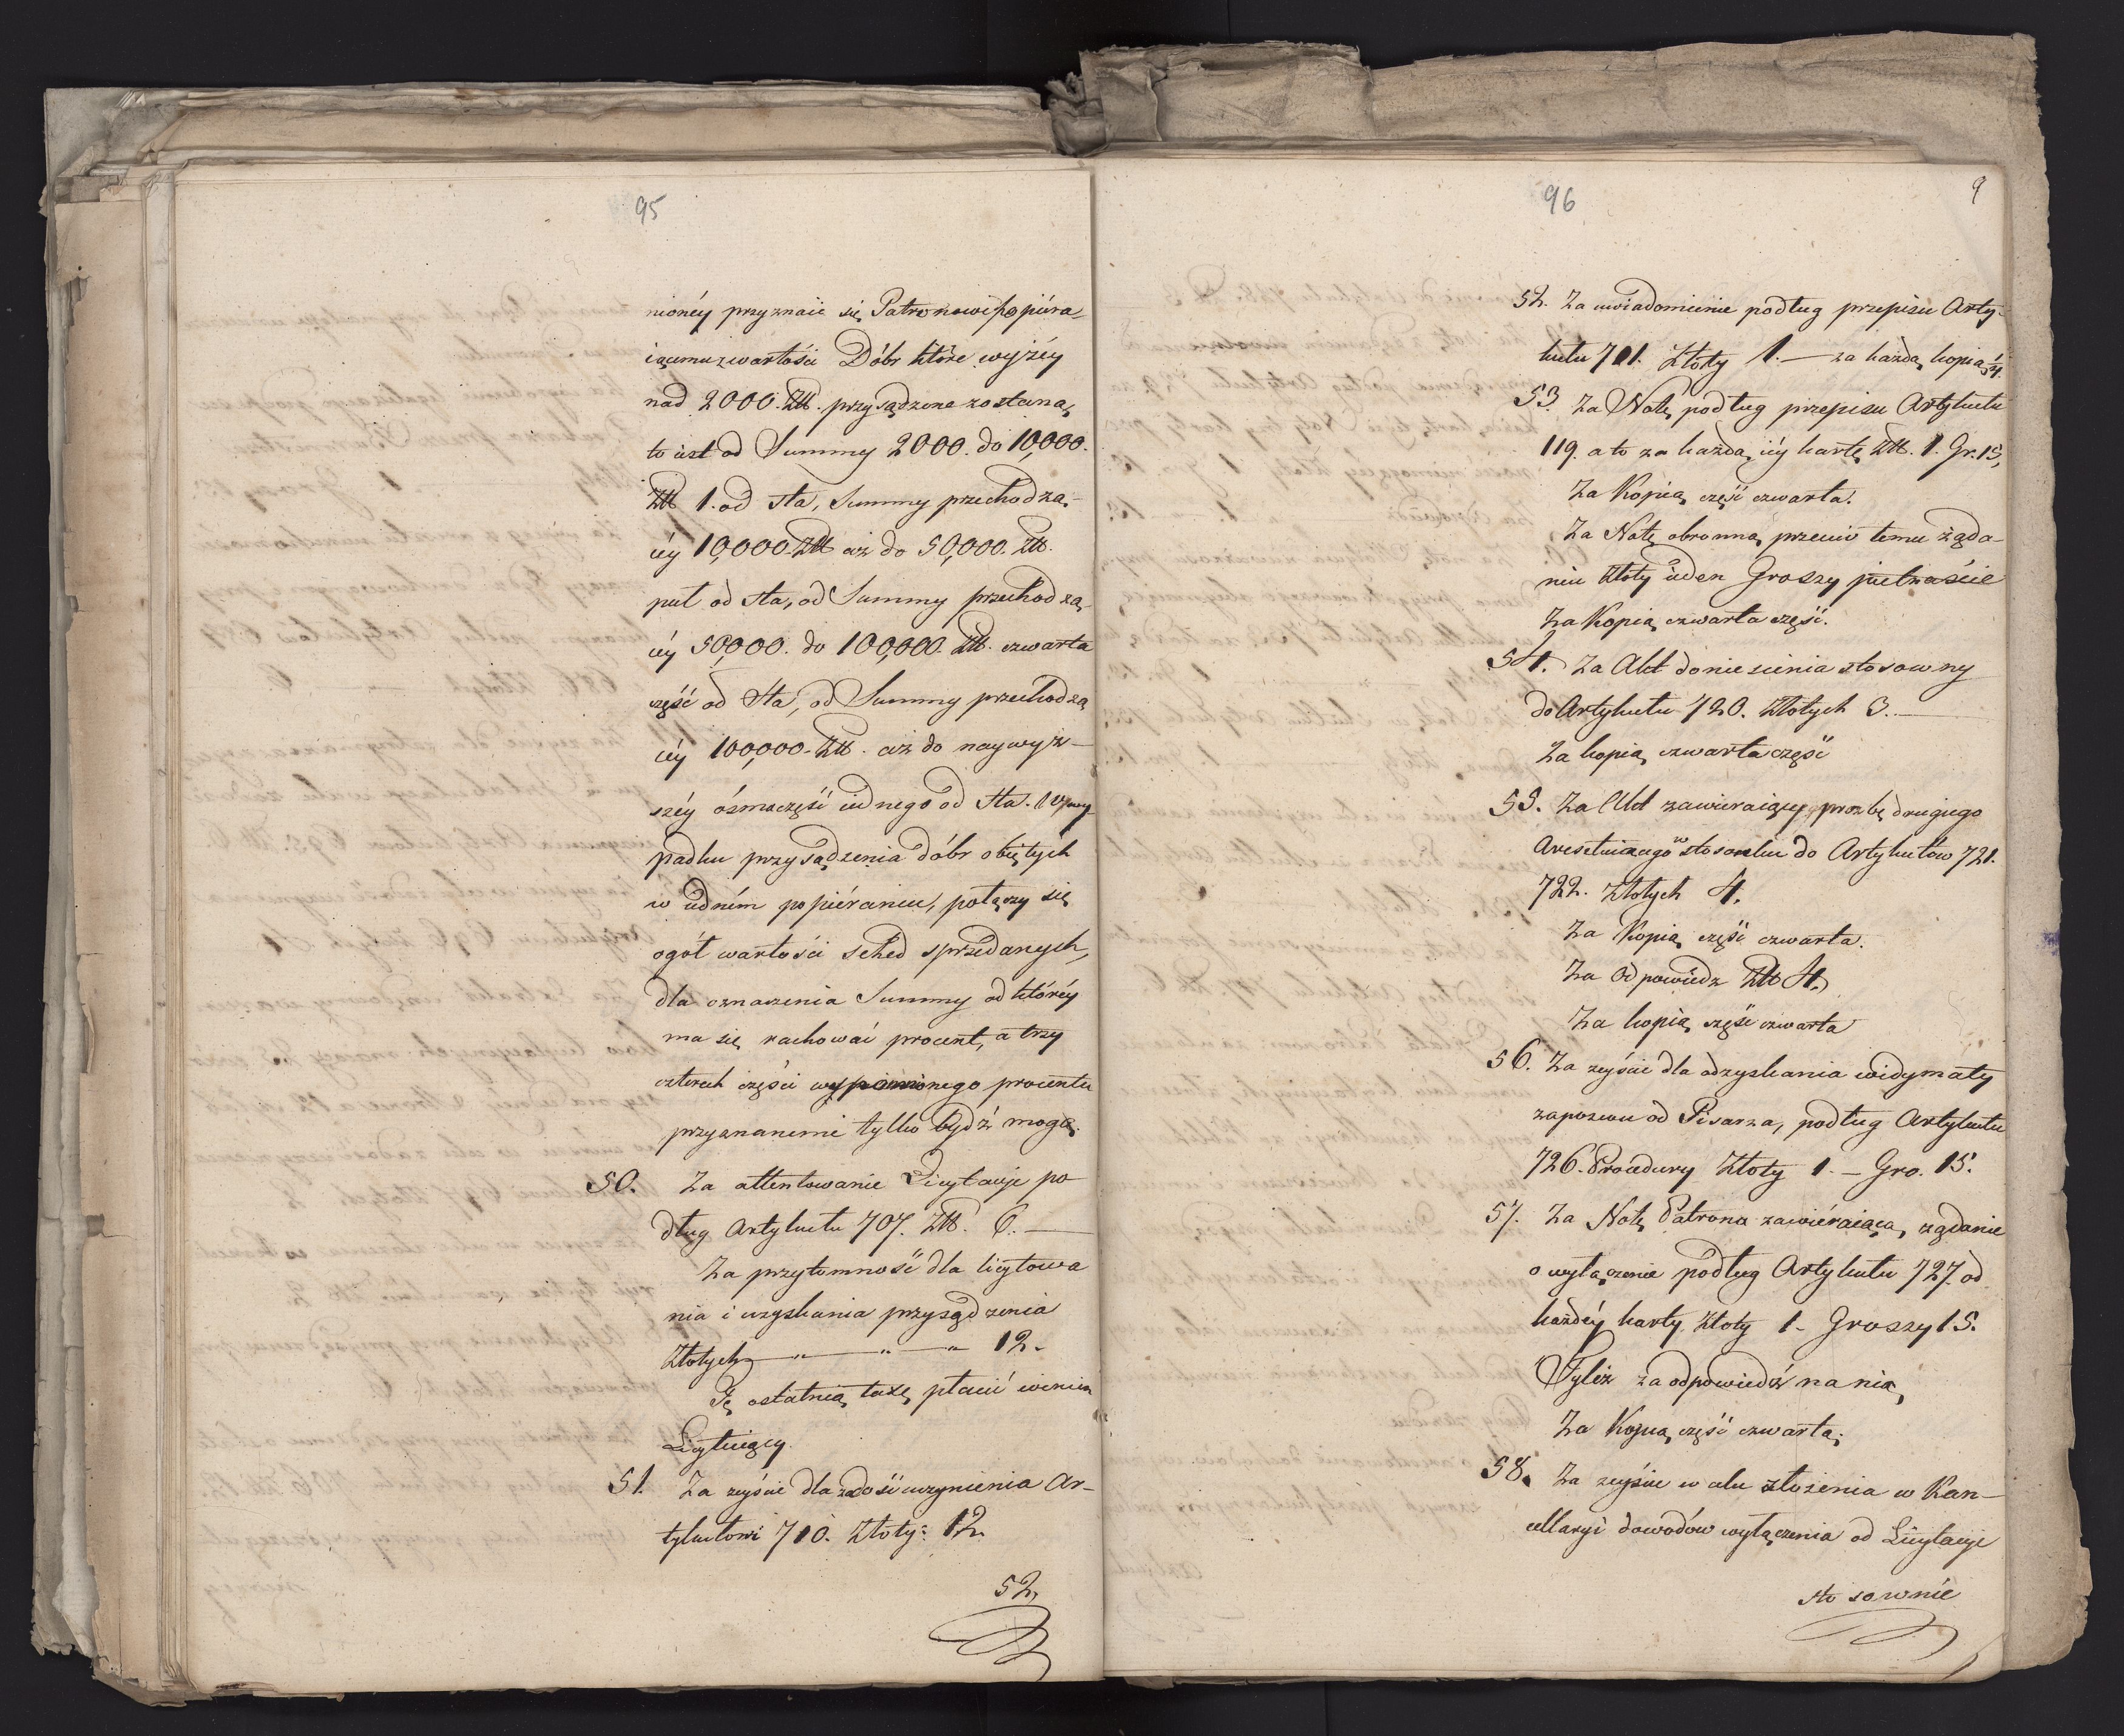 95
nionéy przyznaie się Patronowi popiéra-
iącemu z wartości Dóbr które wyżéy
nad 2000. Zł. przysądzone zostaną,
to iest od Summy 2000. do 10,000.
Zł 1. od sta, Summy przechodzą-
céy 10,000 Zł aż do 50,000. Zł.
puł od sta, od Summy przechodzą-
céy 50,000. do 100,000. Zł. czwarta
część od Sta, od Summy przechodzą
céy 100,000. Zł. aż do naywyż-
széy ósma część iednego od sta. W przy-
padku przysądzenia dóbr obiętych
w iedném popiéraniu, połączy się
ogół wartości sched sprzedanych,
dla oznaczenia Summy od któréy
ma się rachować procent, a trzy
czterech części wypomnionego procentu
przyznanemi tylko bydź mogą.
50. Za attentowanie Licytacyi po-
dług Artykułu 707. Zł. 6. —
Za przytomność dla licytowa
nia i uzyskania przysądzenia
Złotych — " — " — " 12.
Tę ostatnią taxę płacić winien
Licytuiący.
51. Za zeyście dla zadość uczynienia Ar-
tykułowi 710. Złoty: 12.
52,
96
9
52. Za uwiadomienie podług przepisu Arty-
kułu 701. Złoty 1. — za każdą kopią ¼.
53. Za Notę podług przepisu Artykułu
119. a to za każdą iéy kartę Zł. 1. Gr. 15,
Za Kopią część czwarta.
Za Notę obronną przeciw temu żąda-
niu Złoty ieden Groszy pietnaście
Za Kopią czwarta część.
54. Za Akt doniesienia stosowny
do Artykułu 720. Złotych 3. —
Za kopią czwarta część
55. Za Akt zawieraiący prozbę drugiego
Aresztuiącego w stosunku do Artykułów 721.
722. Złotych 4.
Za Kopią część czwarta.
Za odpowiedz Zł 4.
Za kopią część czwarta
56. Za zeyście dla odzyskania widymaty
zapozwu od Pisarza, podług Artykułu
726. Procedury Złoty 1. — Gro. 15.
57. Za Notę Patrona zawiéraiącą żądanie
o wyłączenie podług Artykułu 727. od
każdéy karty Złoty 1 - Groszy 15.
Tyleż za odpowiedź na nią,
Za Kopią część czwarta.
58. Za zeyście w celu złożenia w Kan-
cellaryi dowodów wyłączenia od Licytacyi
sto sownie